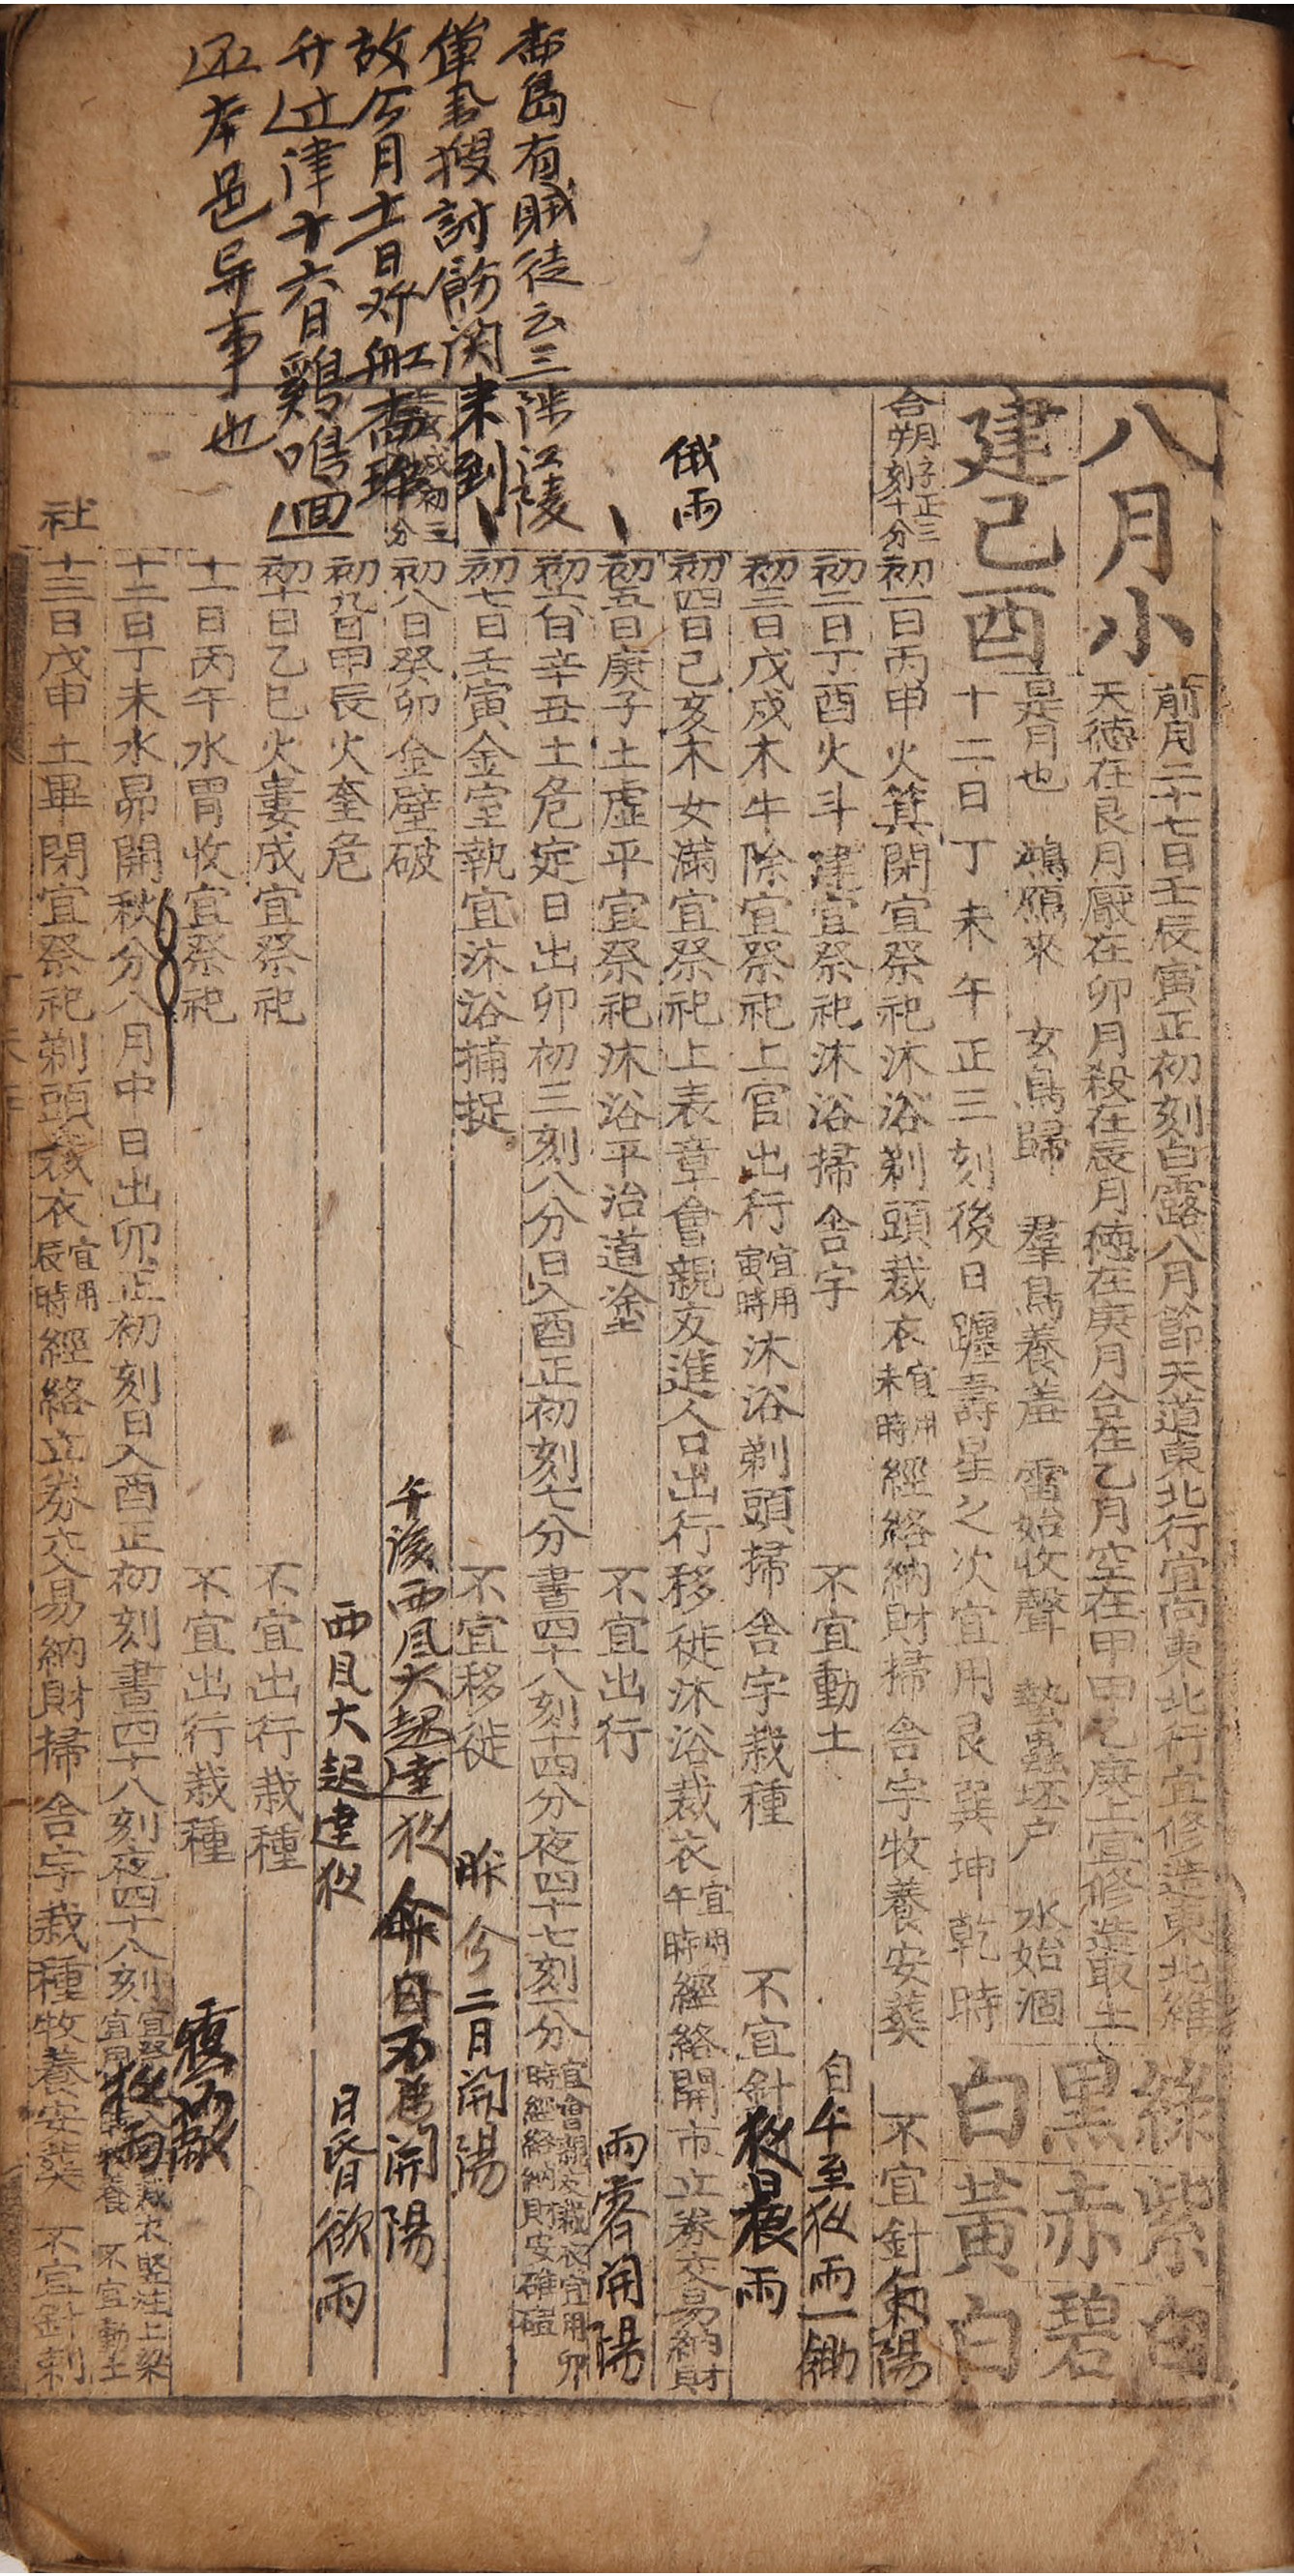 八月小
前月二十七日壬辰寅正初刻白露八月節天道東北行宜向東北行宜修造東北維
天德在艮月厭在卯月殺在辰月德在庚月合在乙月空在甲甲乙庚上宜修造取土
建己酉
是月也 鴻鴈來 玄鳥歸 羣鳥養羞 雷始收聲 蟄蟲坯户 水始涸
十二日丁未午正三刻後日躔壽星之次宜用艮巽坤乾時
綠紫白
黑赤碧
白黃白
合朔子正三刻十分
初一日丙申火箕閉宜祭祀沐浴剃頭裁衣宜用未時經絡納財掃舍宇牧養安葬 不宜針刺
陽
初二日丁酉火斗建宜祭祀沐浴掃舍宇 不宜動土
自午至夜雨一鋤
初三日戊戌木牛除宜祭祀上官出行宜用寅時沐浴剃頭掃舍宇栽種 不宜針
夜晨雨
俄雨
初四日己亥木女滿宜祭祀上表章會親友進人口出行移徙沐浴裁衣宜用午時經絡開市立券交易納財
初五日庚子土虛平宜祭祀沐浴平治道塗 不宜出行
雨霽開陽
初六日辛丑土危定日出卯初三刻八分日入酉正初刻七分晝四十八刻十四分夜四十七刻一分宜會親友裁衣宜用卯時經絡納財安碓磑
初七日壬寅金室執宜沐浴捕捉 不宜移徙
昨今二月開陽
初八日癸卯金壁破
午後西風大起達夜
開陽
初九日甲辰火奎危
西風大起達夜
日昏欲雨
初十日乙巳火婁成宜祭祀 不宜出行栽種
十一日丙午水胃收宜祭祀 不宜出行栽種
十二日丁未水昴開秋分八月中日出卯正初刻日入酉正初刻晝四十八刻夜四十八刻 裁衣豎柱上梁 不宜動土
夜雨
社
十三日戊申土畢閉宜祭祀剃頭裁衣宜用辰時經絡立券交易納財掃舍宇栽種牧養安葬 不宜針刺
島有賊徒云三陟江陵
搜討飭関来到
故今月十一日
津十六日鷄鳴回
還本邑异事也